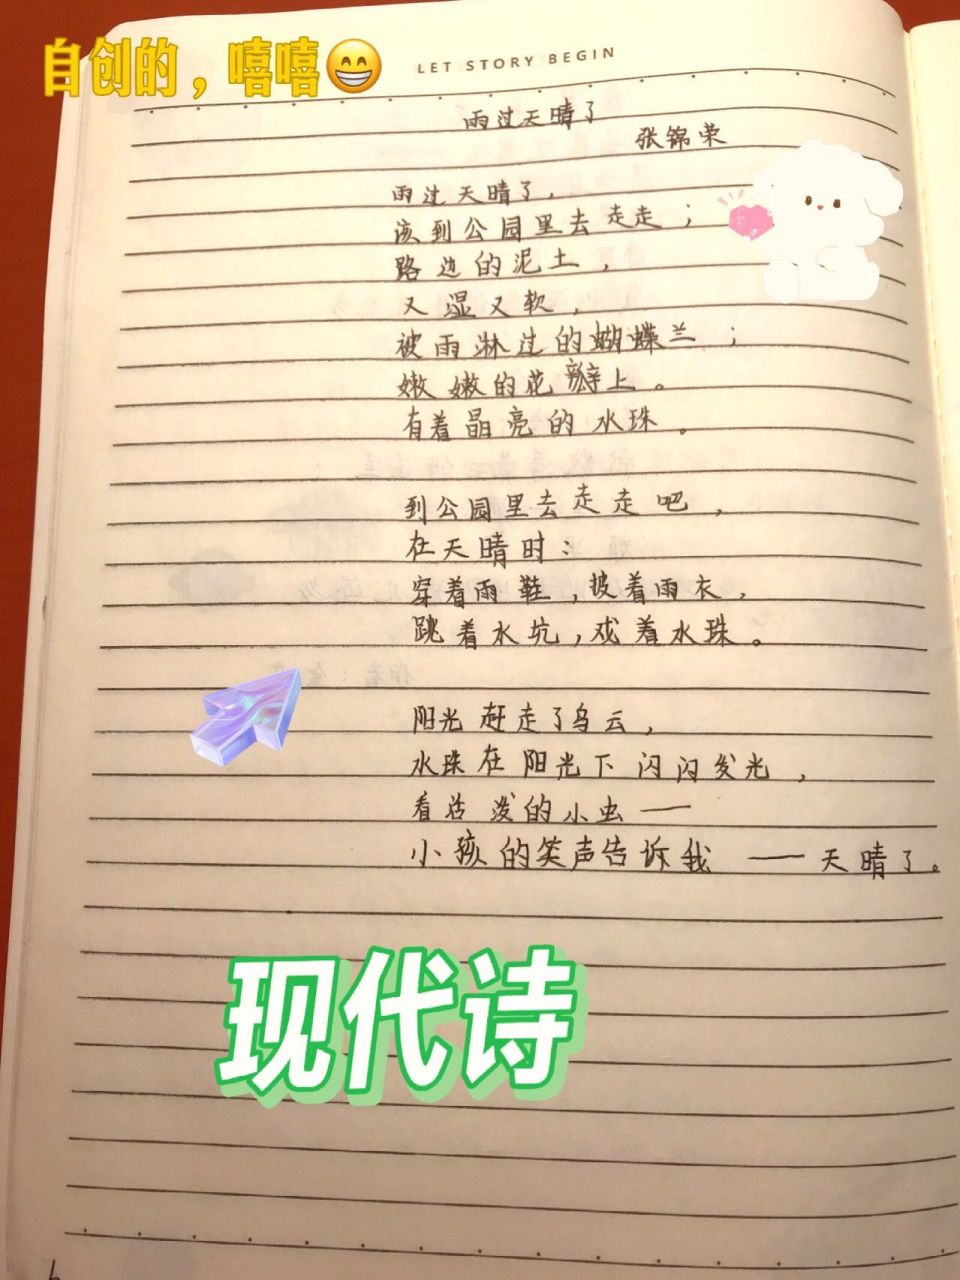 自创的，嘻嘻😁
LET STORY BEGIN
雨过天晴了
张锦荣
雨过天晴了，
该到公园里去走走；
路边的泥土，
又湿又软，
被雨淋过的蝴蝶兰；
嫩嫩的花瓣上。
有着晶亮的水珠。
到公园里去走走吧，
在天晴时：
穿着雨鞋，披着雨衣，
跳着水坑，戏着水珠。
阳光赶走了乌云，
水珠在阳光下闪闪发光，
看活泼的小虫——
小孩的笑声告诉我——天晴了。
现代诗